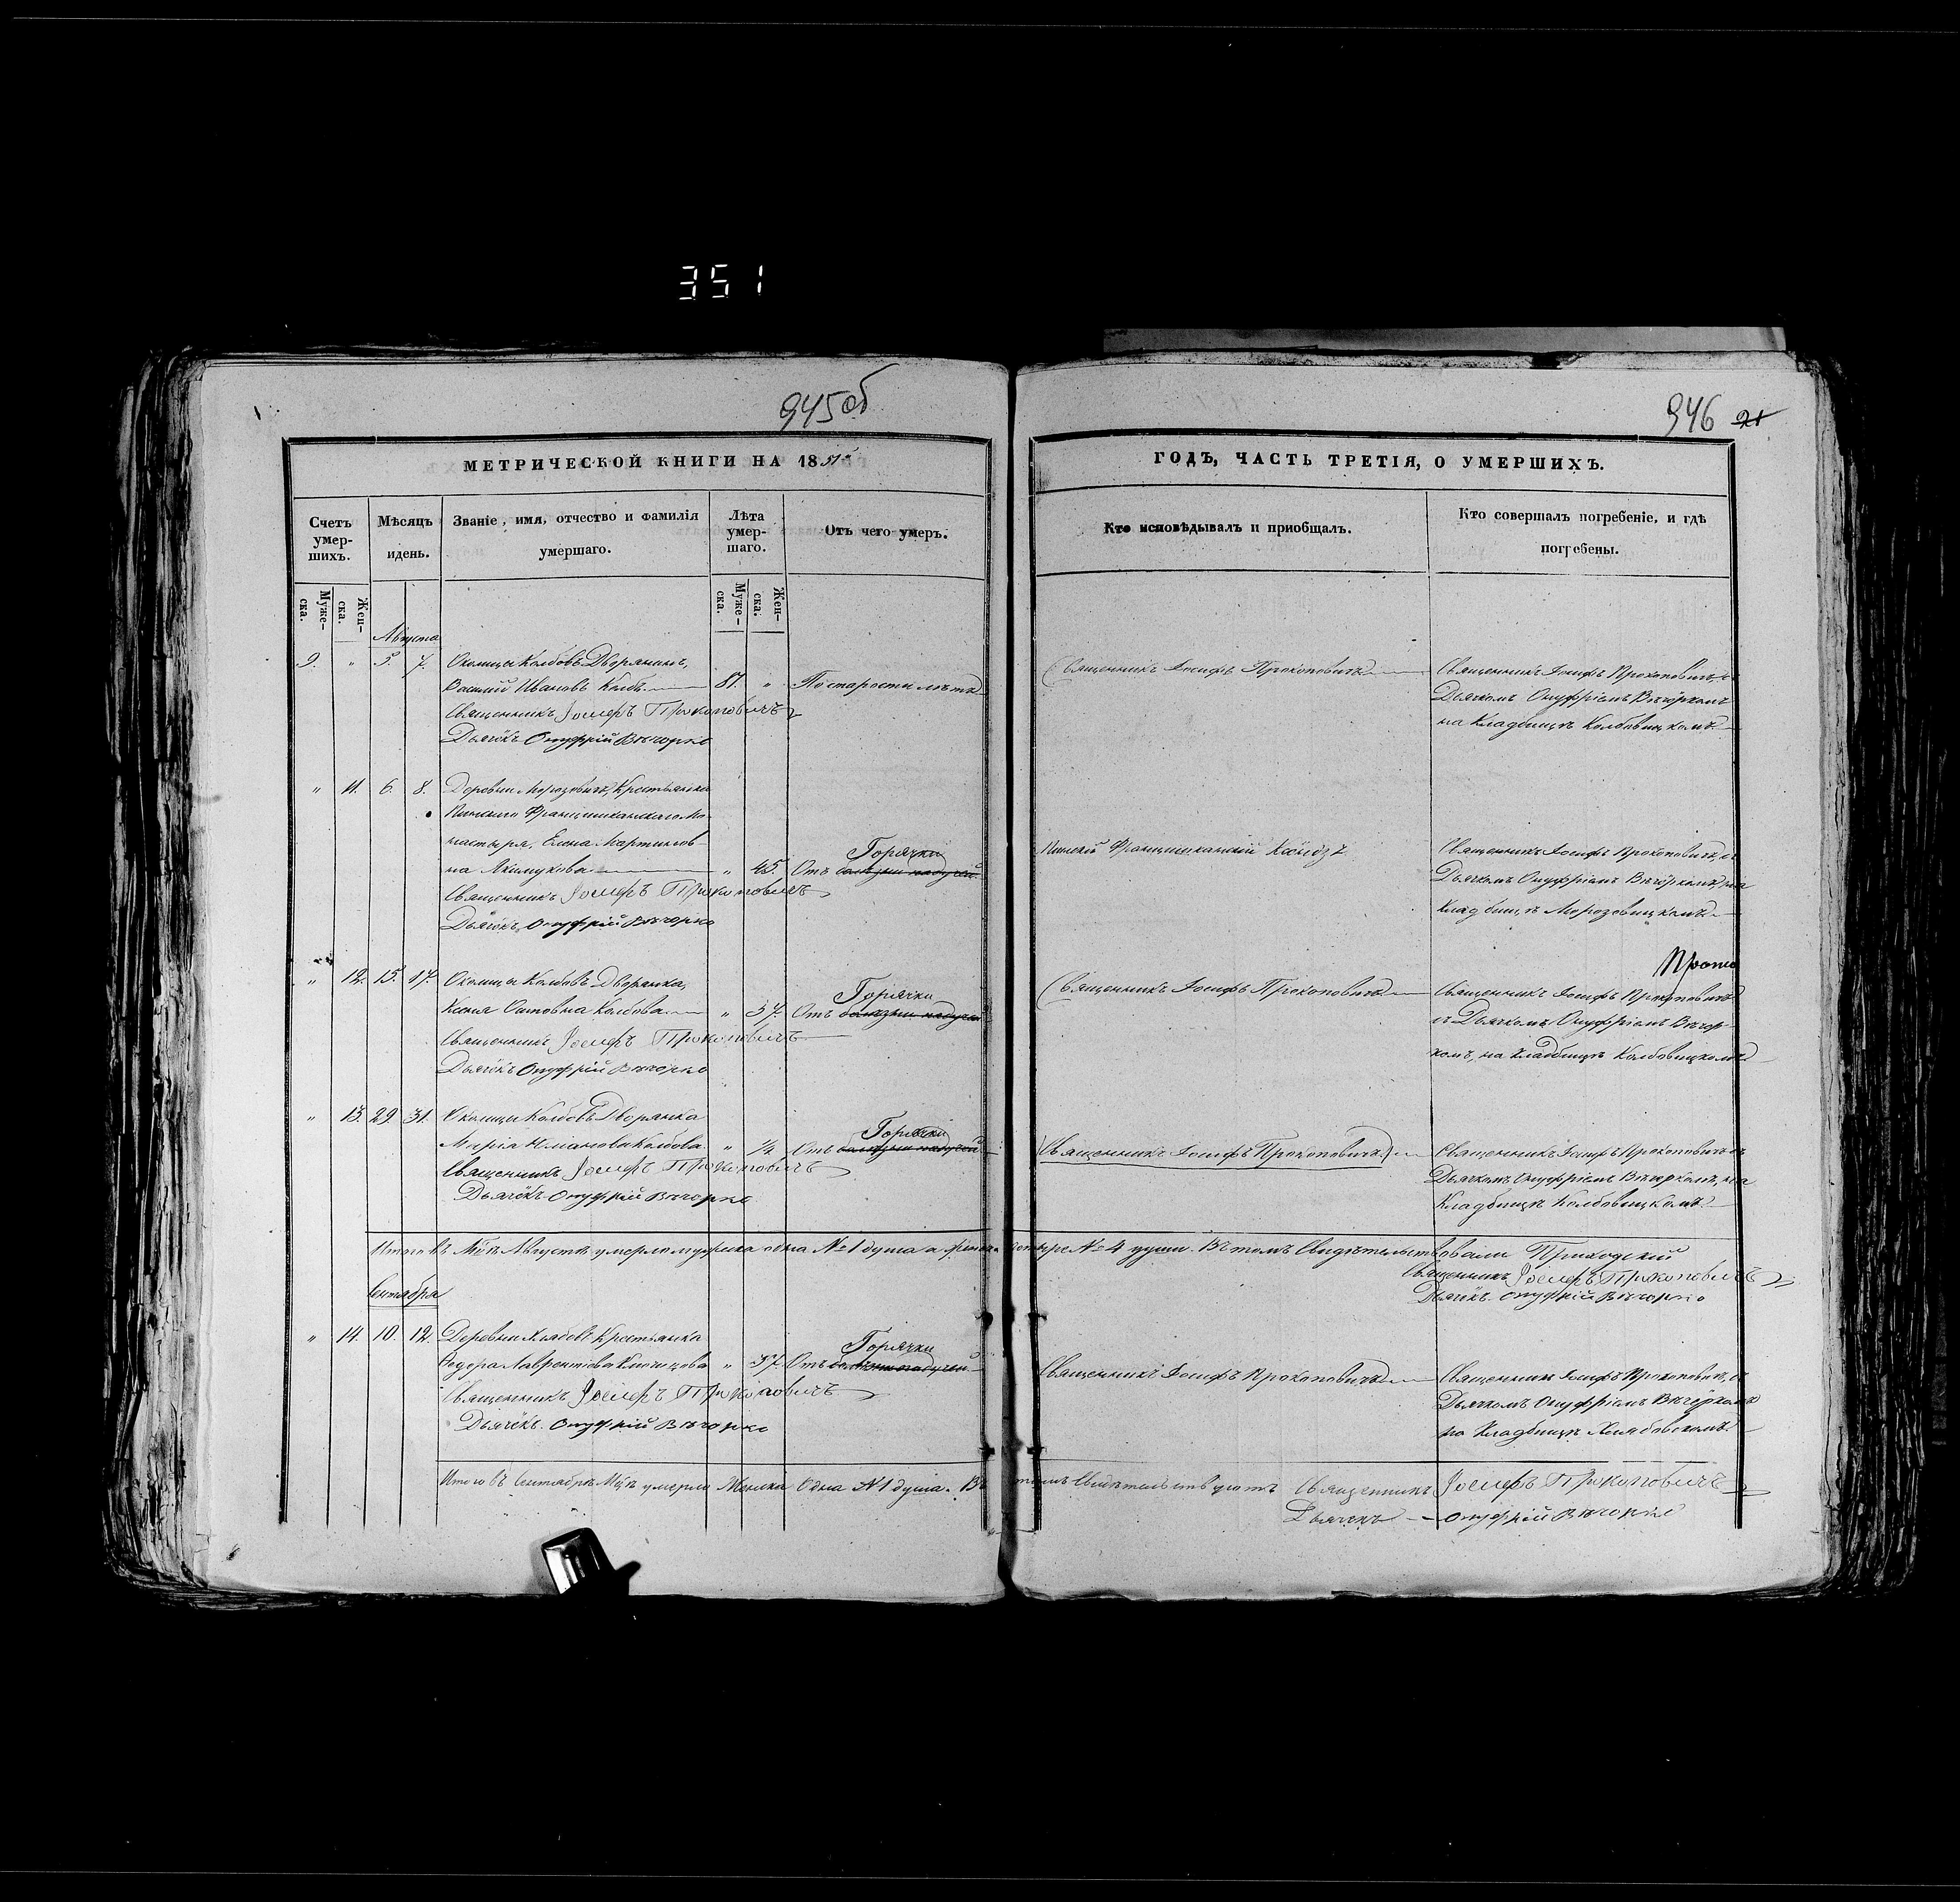 351
945об
946 21
МЕТРИЧЕСКОЙ КНИГИ НА 1851й
ГОДЪ, ЧАСТЬ ТРЕТІЯ, О УМЕРШИХЪ.
Счетъ умер-шихъ.
Мѣсяцъ идень.
Званіе, имя, отчество и фамилія
умершаго.
Лѣта умер-шаго.
Отъ чего умеръ.
Кто исповѣдывалъ и приобщалъ.
Кто совершалъ погребеніе, и гдѣ
погребены.
Муже-ска.
Жен-ска.
Муже-ска.
Жен-ска.
Августа
9. " 5. 7. Околицы Колбовъ Дворянинъ,
Василій Ивановъ Колбъ 81. " По старости лѣтъ
Священникъ Іосифъ Прокоповичъ
Дьячёкъ Онуфрій Вечорко
Священникъ Іосифъ Прокоповичъ
Священникъ Іосифъ Прокоповичъ, съ
Дьячкомъ Онуфріемъ Вечёркомъ
на Кладбищѣ Колбовицкомъ.
" 11. 6. 8. Деревни Морозовичъ, Крестьянка
Пинскаго Францишканскаго Мо-
настыря, Елена Мартинов-
на Акимукова " 45. Отъ Горячки
Священникъ Іосифъ Прокоповичъ
Дьячёкъ Онуфрій Вечорко
Пинскій Францишканскій Ксіондзъ
Священникъ Іосифъ Прокоповичъ, съ
Дьячкомъ Онуфріемъ Вечёркомъ, на
Кладбищѣ Морозовицкомъ.
" 12. 15. 17. Околицы Колбовъ Дворянка,
Ксенія Колбова " 37. Отъ Горячки
Священникъ Іосифъ Прокоповичъ
Дьячёкъ Онуфрій Вечорко
Священникъ Іосифъ Прокоповичъ
Священникъ Іосифъ Прокоповичъ
съ Дьячкомъ Онуфріемъ Вечор-
комъ, на Кладбищѣ Колбовицкомъ.
" 13. 29. 31. Околицы Колбовъ Дворянка
Марія Колбова. " ¼ Отъ Горячки
Священникъ Іосифъ Прокоповичъ
Дьячёкъ Онуфрій Вечорко
Священникъ Іосифъ Прокоповичъ
Священникъ Іосифъ Прокоповичъ съ
Дьячкомъ Онуфріемъ Вечоркомъ, на
Кладбищѣ Колбовицкомъ.
Итого въ Мцѣ Августѣ умерло мужеска одна №1 душа а женска четыре №4 души. Въ томъ Свидѣтельствовали Приходскій
Священникъ Іосифъ Прокоповичъ
Дьячёкъ Онуфрій Вечорко
Сентября
" 14. 10. 12. Деревни Крестьянка
Лаврентіева " 57. Отъ Горячки
Священникъ Іосифъ Прокоповичъ
Дьячёкъ Онуфрій Вечорко
Священникъ Іосифъ Прокоповичъ
Священник Іосифъ Прокоповичъ, съ
Дьячкомъ Онуфріемъ Вечёркомъ
на Кладбищѣ
Итого въ Сентябрѣ Мцѣ умерло Женска Одна №1 душа. Въ томъ Свидѣтельствуютъ Священникъ Іосифъ Прокоповичъ
Дьячекъ Онуфрій Вечорко